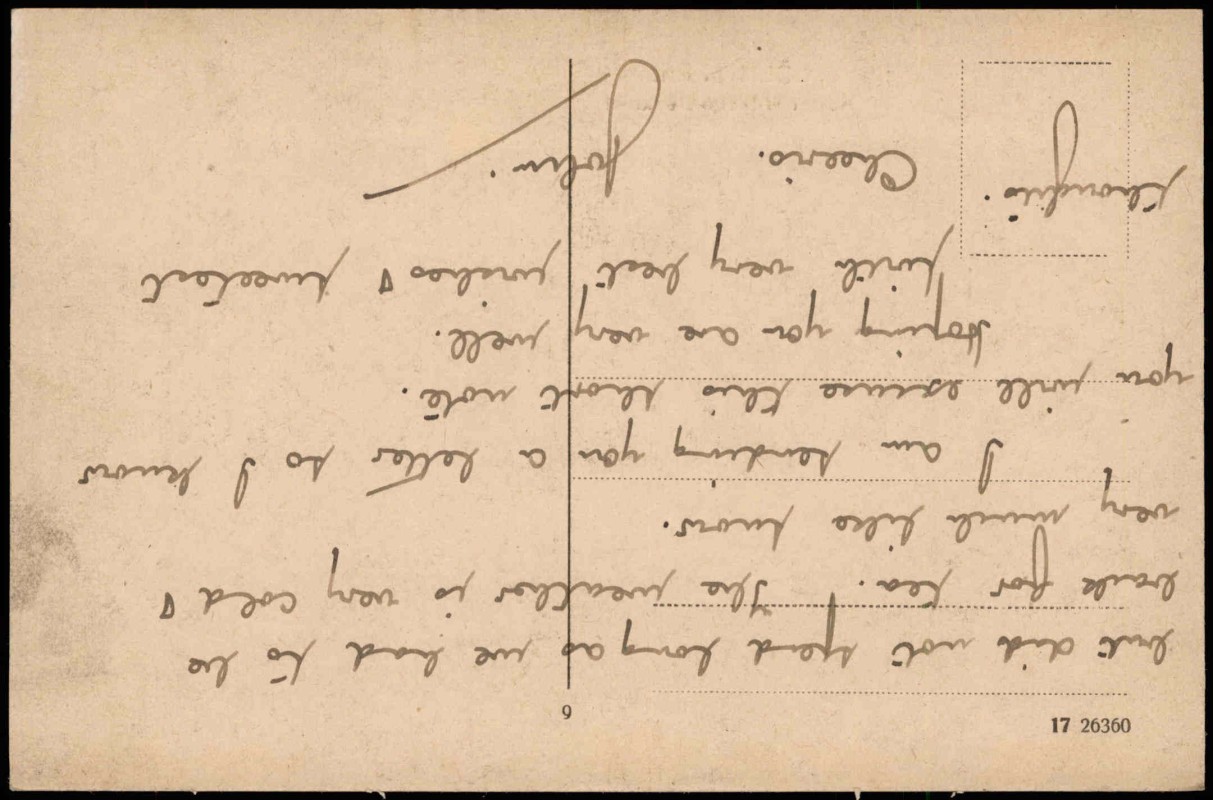 but did not spend long as we had to be
back for tea. The weather is very cold &
very much like snow.
I am sending you a letter so I know
you will excuse this short note.
Hoping you are very well.
With very best wishes & sweetest
thoughts. Cheerio.
John.
9
17 26360